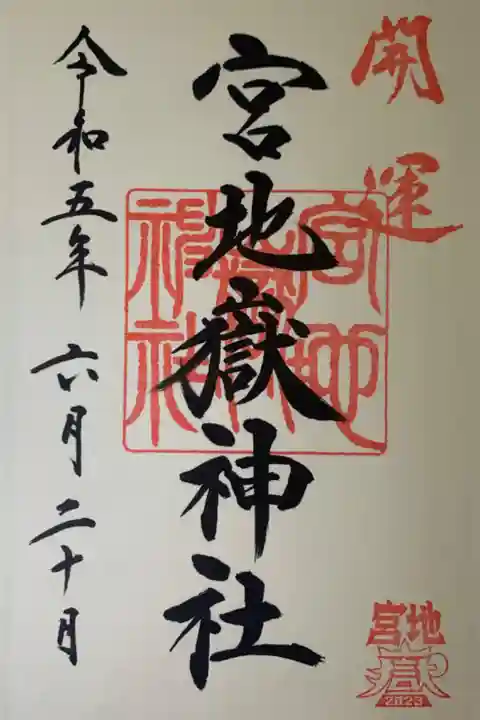 開運
宮地嶽神社
令和五年 六月二十日
宮地
嶽
2023